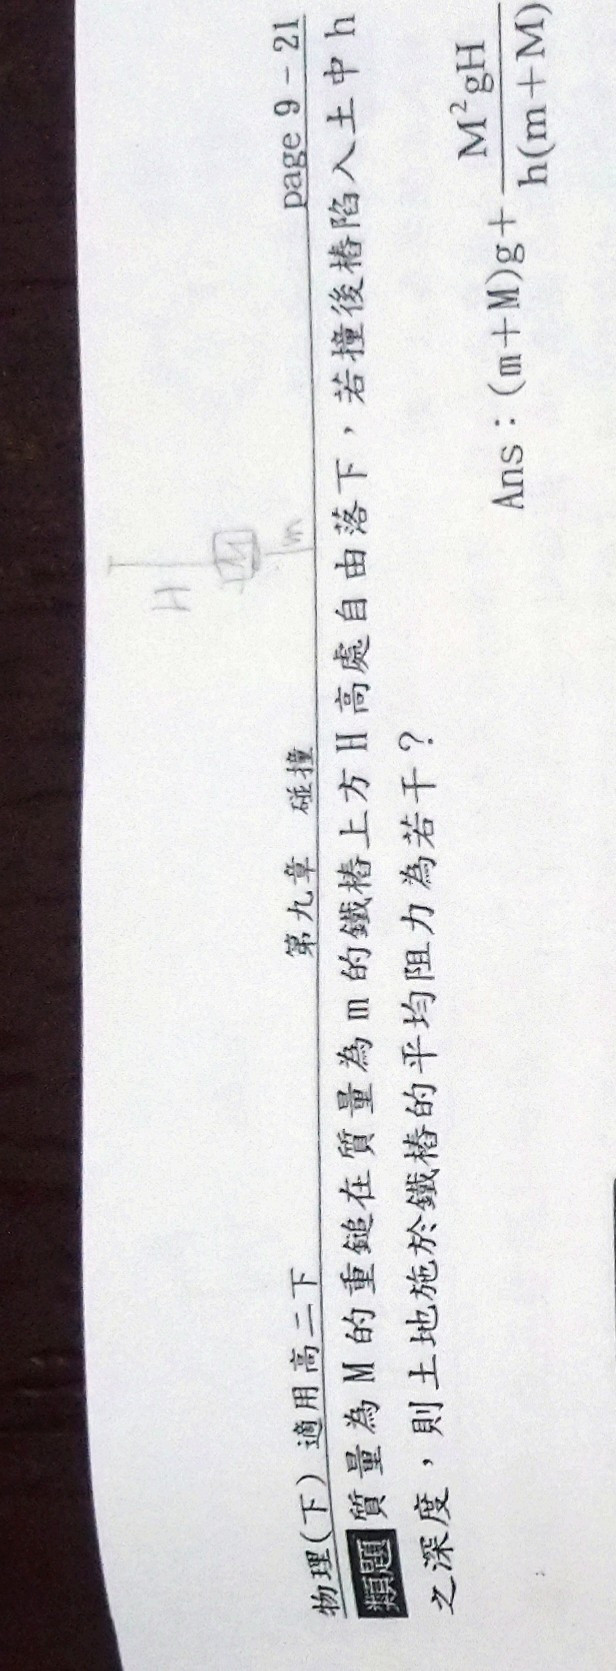 物理(下) 適用高二下 第九章 碰撞 page 9-21
H
M
m
類題 質量為M的重鎚在質量為m的鐵樁上方H高處自由落下，若撞後樁陷入土中h
之深度，則土地施於鐵樁的平均阻力為若干？
Ans：(m+M)g+ M²gH / h(m+M)